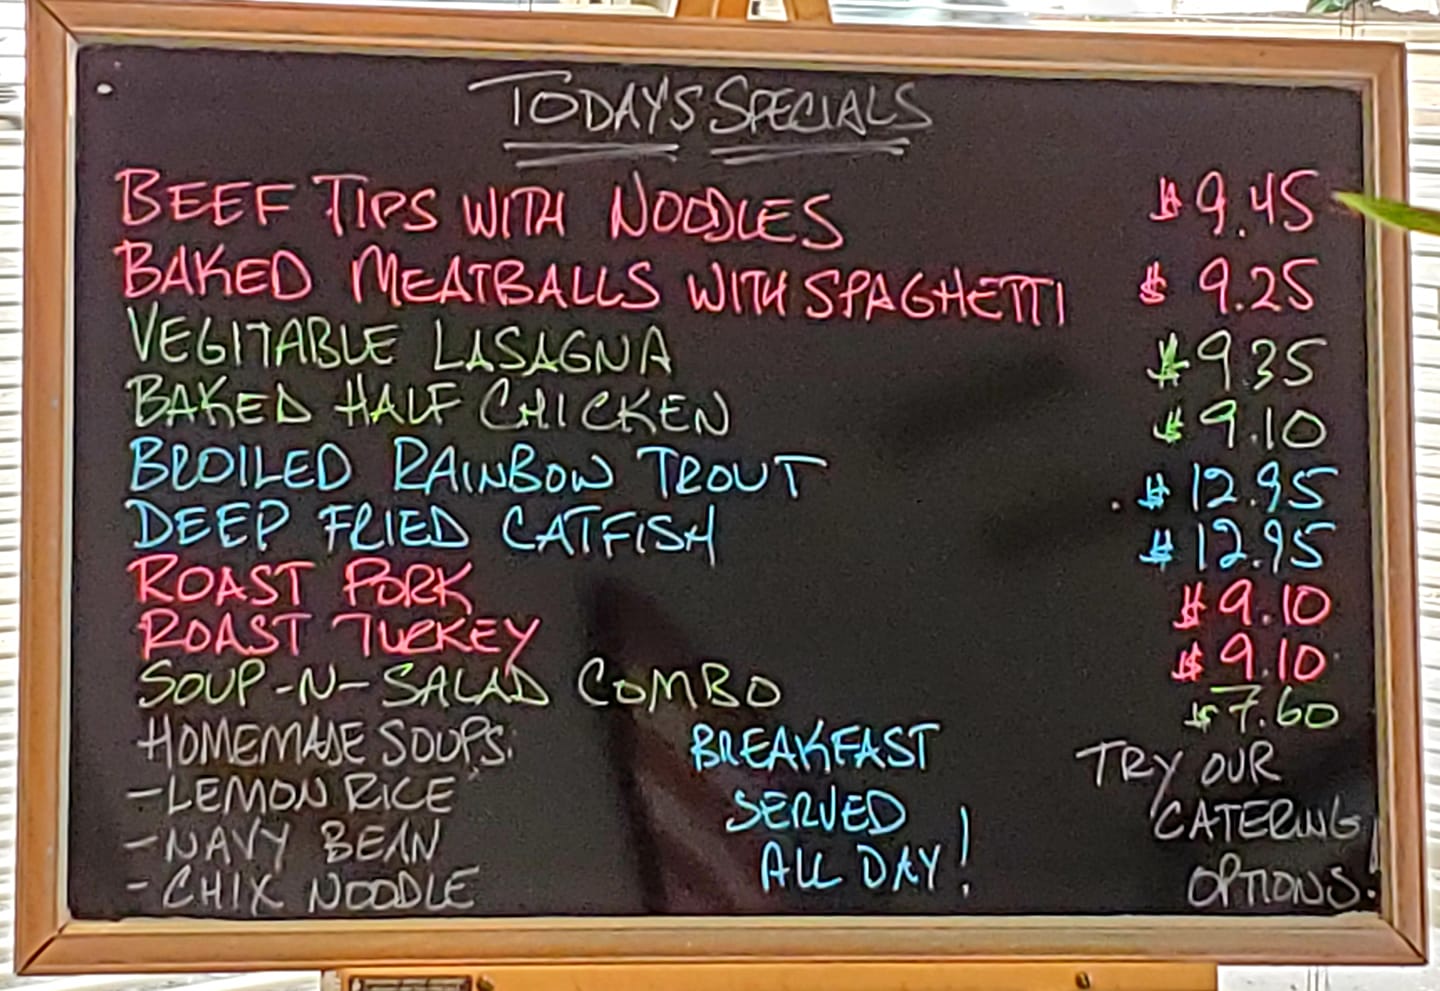 TODAY'S SPECIALS
BEEF TIPS WITH NOODLES $9.45
BAKED MEATBALLS WITH SPAGHETTI $9.25
VEGITABLE LASAGNA $9.35
BAKED HALF CHICKEN $9.10
BROILED RAINBOW TROUT $12.95
DEEP FRIED CATFISH $12.95
ROAST PORK $9.10
ROAST TURKEY $9.10
SOUP-N-SALAD COMBO $7.60
HOMEMADE SOUPS:
-LEMON RICE
-NAVY BEAN
-CHIX NOODLE
BREAKFAST
SERVED
ALL DAY!
TRY OUR
CATERING
OPTIONS!